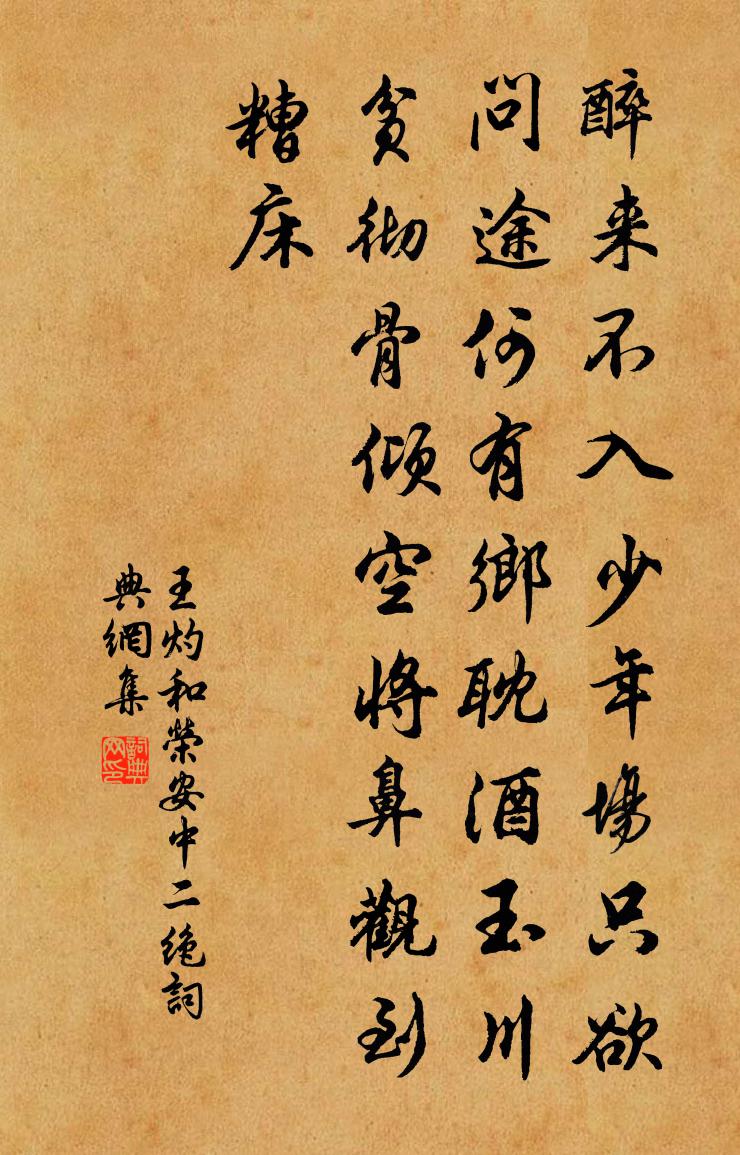 醉来不入少年場只欲
問途何有鄉耽酒玉川
貧彻骨傾空将鼻觀到
糟床
王灼和榮安中二绝詞
典網集
詞典
网印